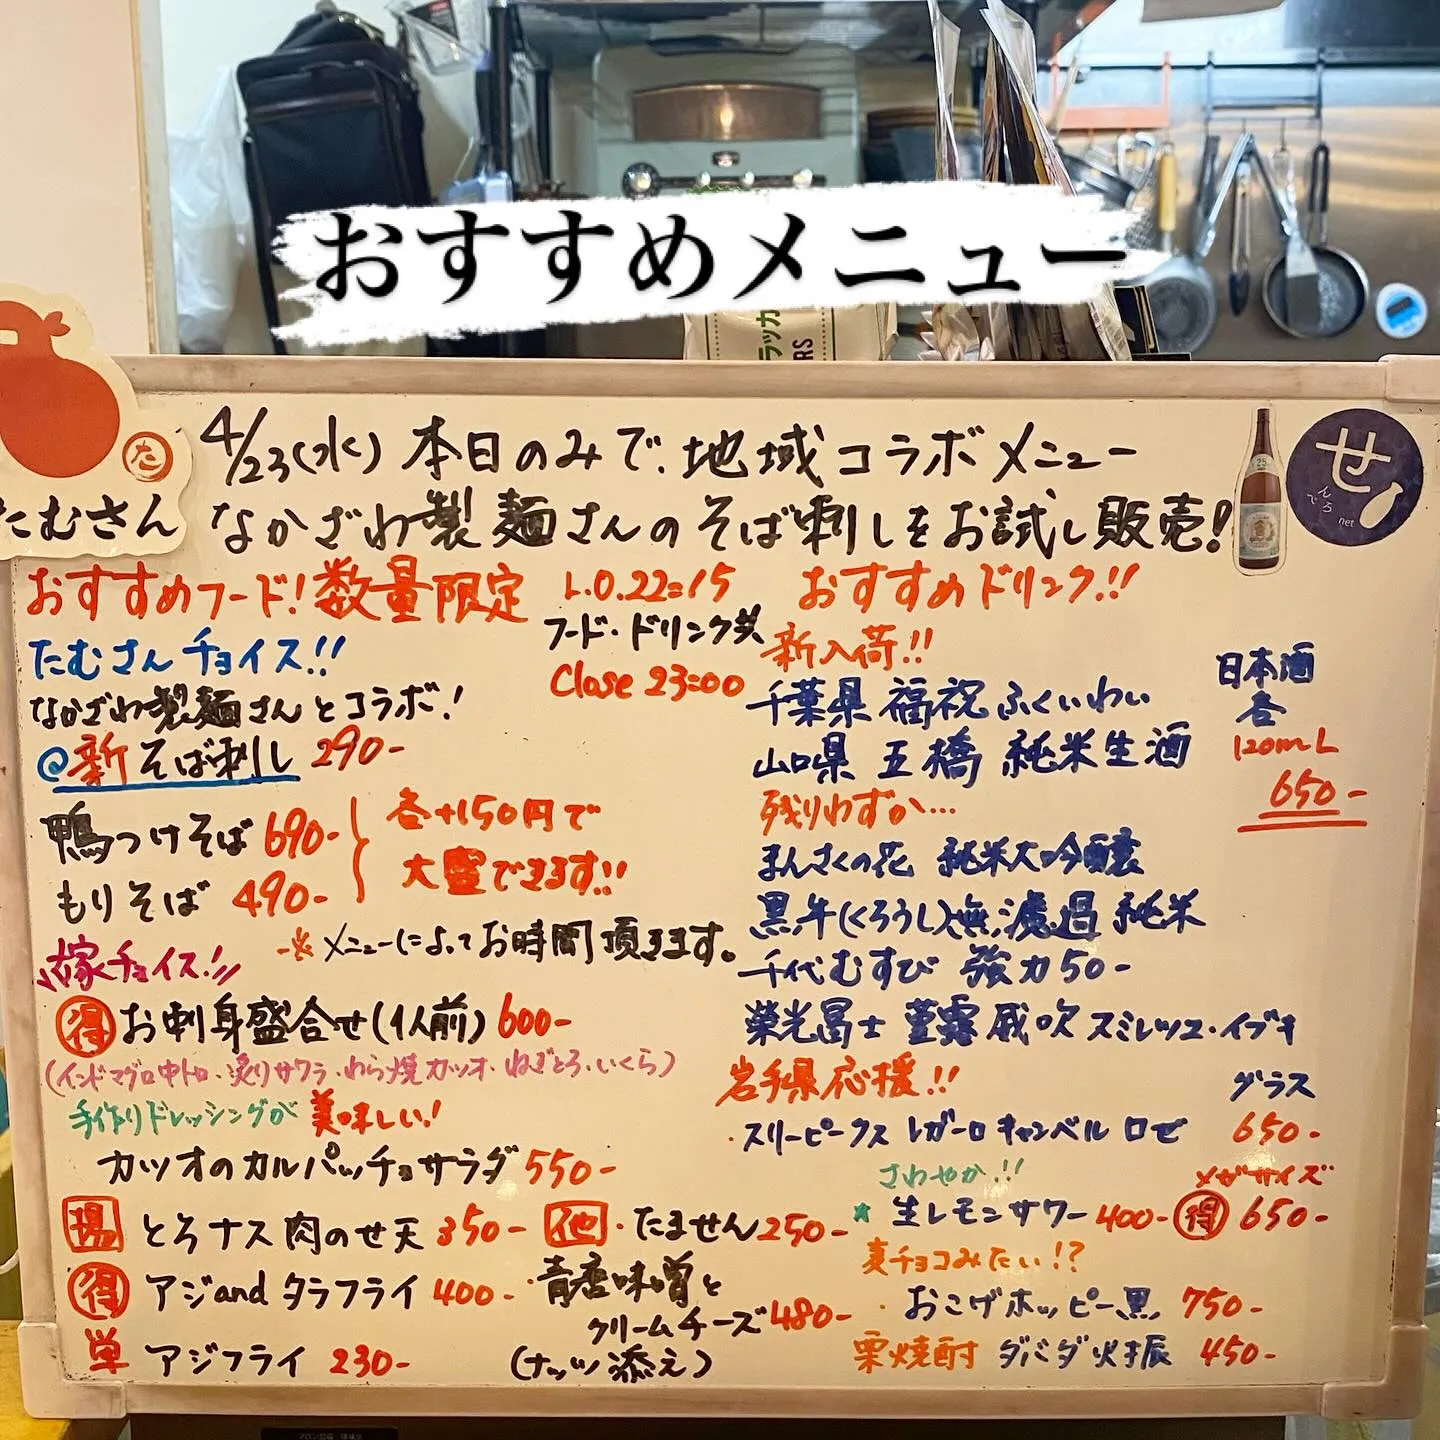 おすすめメニュー
4/23(水)本日のみで、地域コラボメニュー
なかざわ製麺さんのそば刺しをお試し販売!
た
たむさん
せ
でんろ
net
おすすめフード!数量限定
L.O.22:15
フード・ドリンク共
Close 23:00
たむさんチョイス!!
なかざわ製麺さんとコラボ!
@新そば刺し 290-
鴨つけそば 690-
もりそば 490-
各+150円で
大盛できます!!
※メニューによってお時間頂きます。
嫁チョイス!!
得 お刺身盛合せ(1人前) 600-
(インドマグロ中トロ・炙りサワラ・わら焼カツオ・ねぎとろ・いくら)
手作りドレッシングが美味しい!
カツオのカルパッチョサラダ 550-
揚 とろナス肉のせ天 350-
得 アジandタラフライ 400-
単 アジフライ 230-
他・たません 250-
・青唐味噌と
クリームチーズ 480-
(ナッツ添え)
おすすめドリンク!!
新入荷!!
千葉県 福祝 ふくいわい
山口県 五橋 純米生酒
日本酒
各
120mL
650-
残りわずか…
まんさくの花 純米大吟醸
黒牛(くろうし)無濾過純米
千代むすび 強力50-
榮光冨士 菫露威吹 スミレツユ・イブキ
岩手県応援!!
グラス
・スリーピークス レガーロ キャンベル ロゼ 650-
さわやか!!
メガサイズ
生レモンサワー 400- 得 650-
麦チョコみたい!?
・おこげホッピー黒 750-
栗焼酎 ダバダ火振 450-